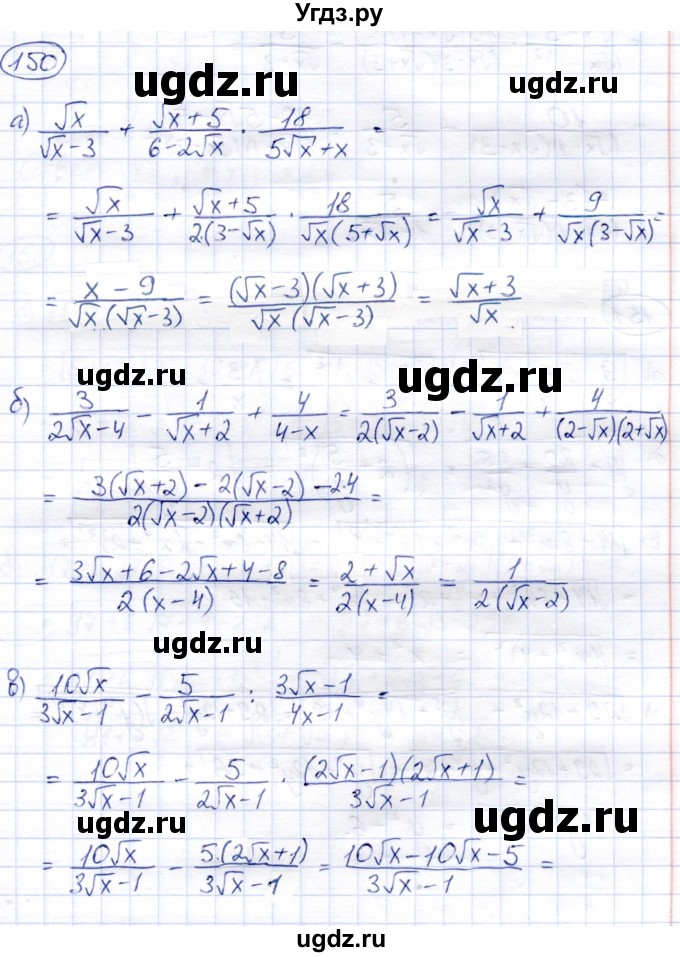 Угдз.ру
150
ugdz.ru
ugdz.ru
а) √x/(√x-3) + (√x+5)/(6-2√x) · 18/(5√x+x) =
= √x/(√x-3) + (√x+5)/(2·(3-√x)) · 18/(√x(5+√x)) = √x/(√x-3) + 9/(√x(3-√x)) =
= (x-9)/(√x·(√x-3)) = ((√x-3)(√x+3))/(√x(√x-3)) = (√x+3)/√x.
ugdz.ru
ugdz.ru
б) 3/(2√x-4) - 1/(√x+2) + 4/(4-x) = 3/(2(√x-2)) - 1/(√x+2) + 4/((2-√x)(2+√x))
= (3(√x+2) - 2(√x-2) - 2·4)/(2(√x-2)(√x+2)) =
= (3√x+6-2√x+4-8)/(2(x-4)) = (2+√x)/(2(x-4)) = 1/(2(√x-2))
ugdz.ru
ugdz.ru
в) 10√x/(3√x-1) - 5/(2√x-1) : (3√x-1)/(4x-1) =
= 10√x/(3√x-1) - 5/(2√x-1) · ((2√x-1)(2√x+1))/(3√x-1) =
ugdz.ru
ugdz.ru
= 10√x/(3√x-1) - 5·(2√x+1)/(3√x-1) = (10√x-10√x-5)/(3√x-1) =
ugdz.ru